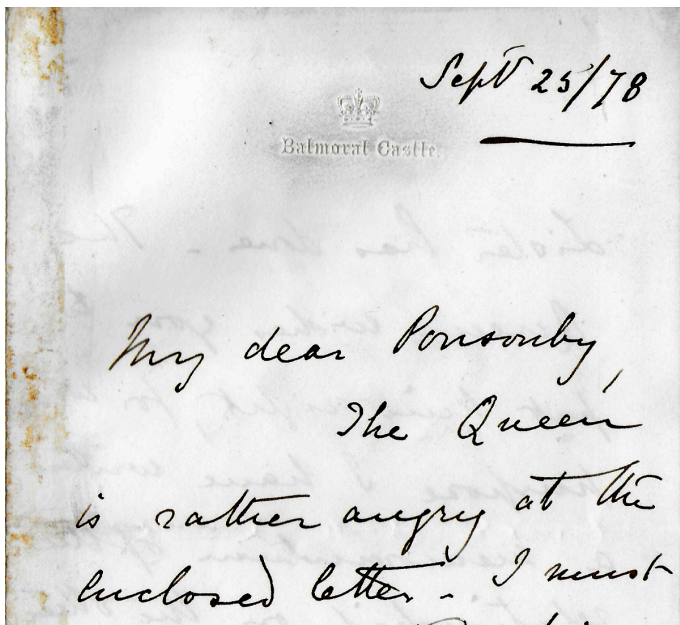 Sept 25/78
Balmoral Castle.
My dear Ponsonby,
The Queen
is rather angry at the
enclosed letter - I must